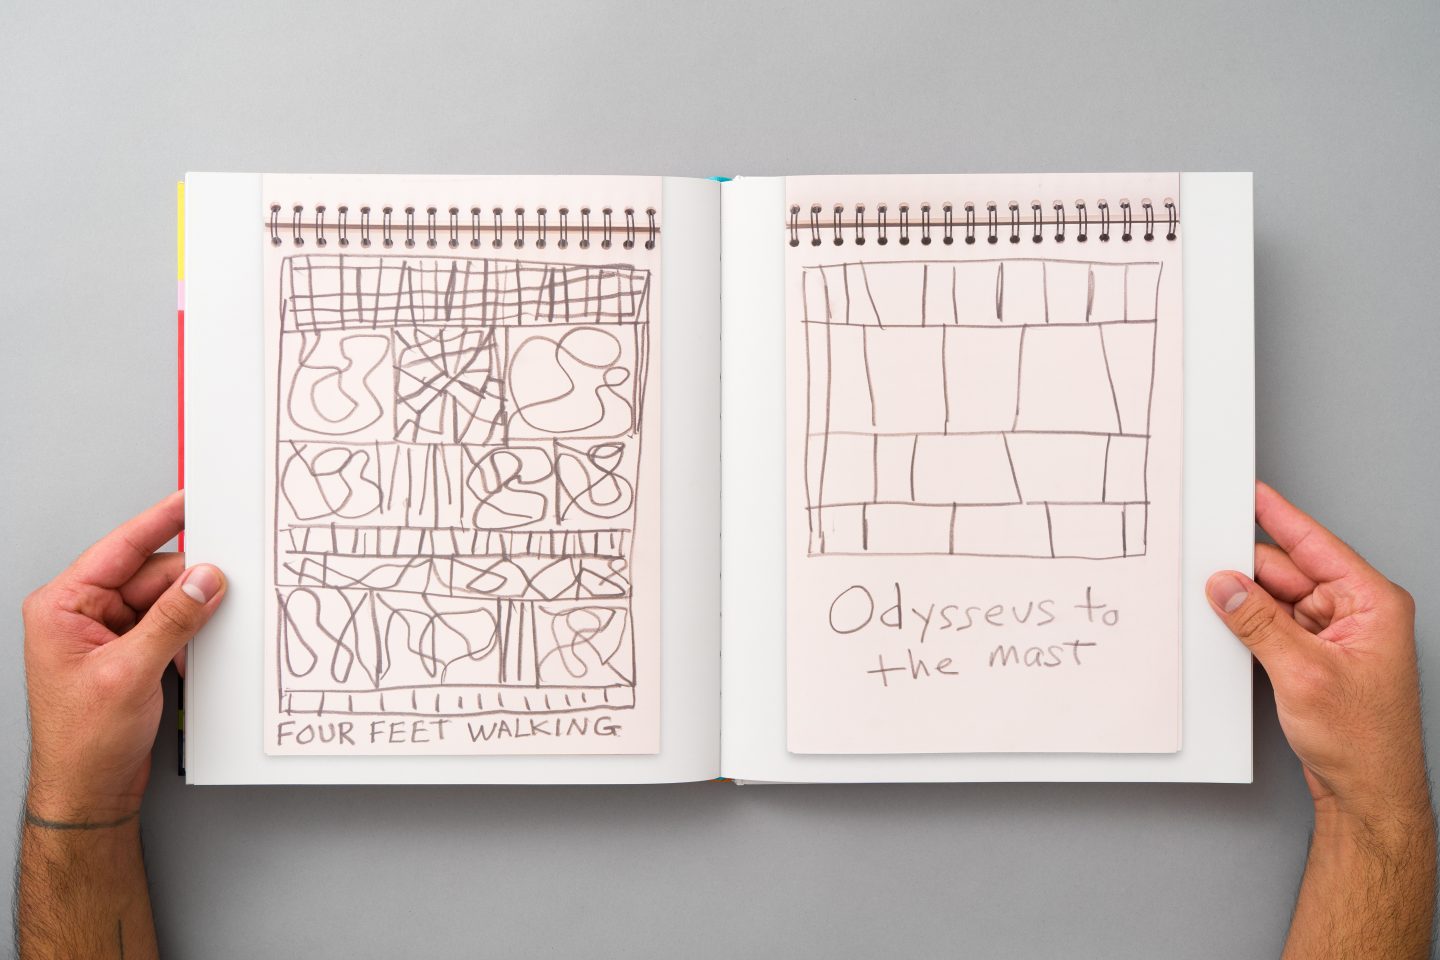 FOUR FEET WALKING
Odysseus to
the mast